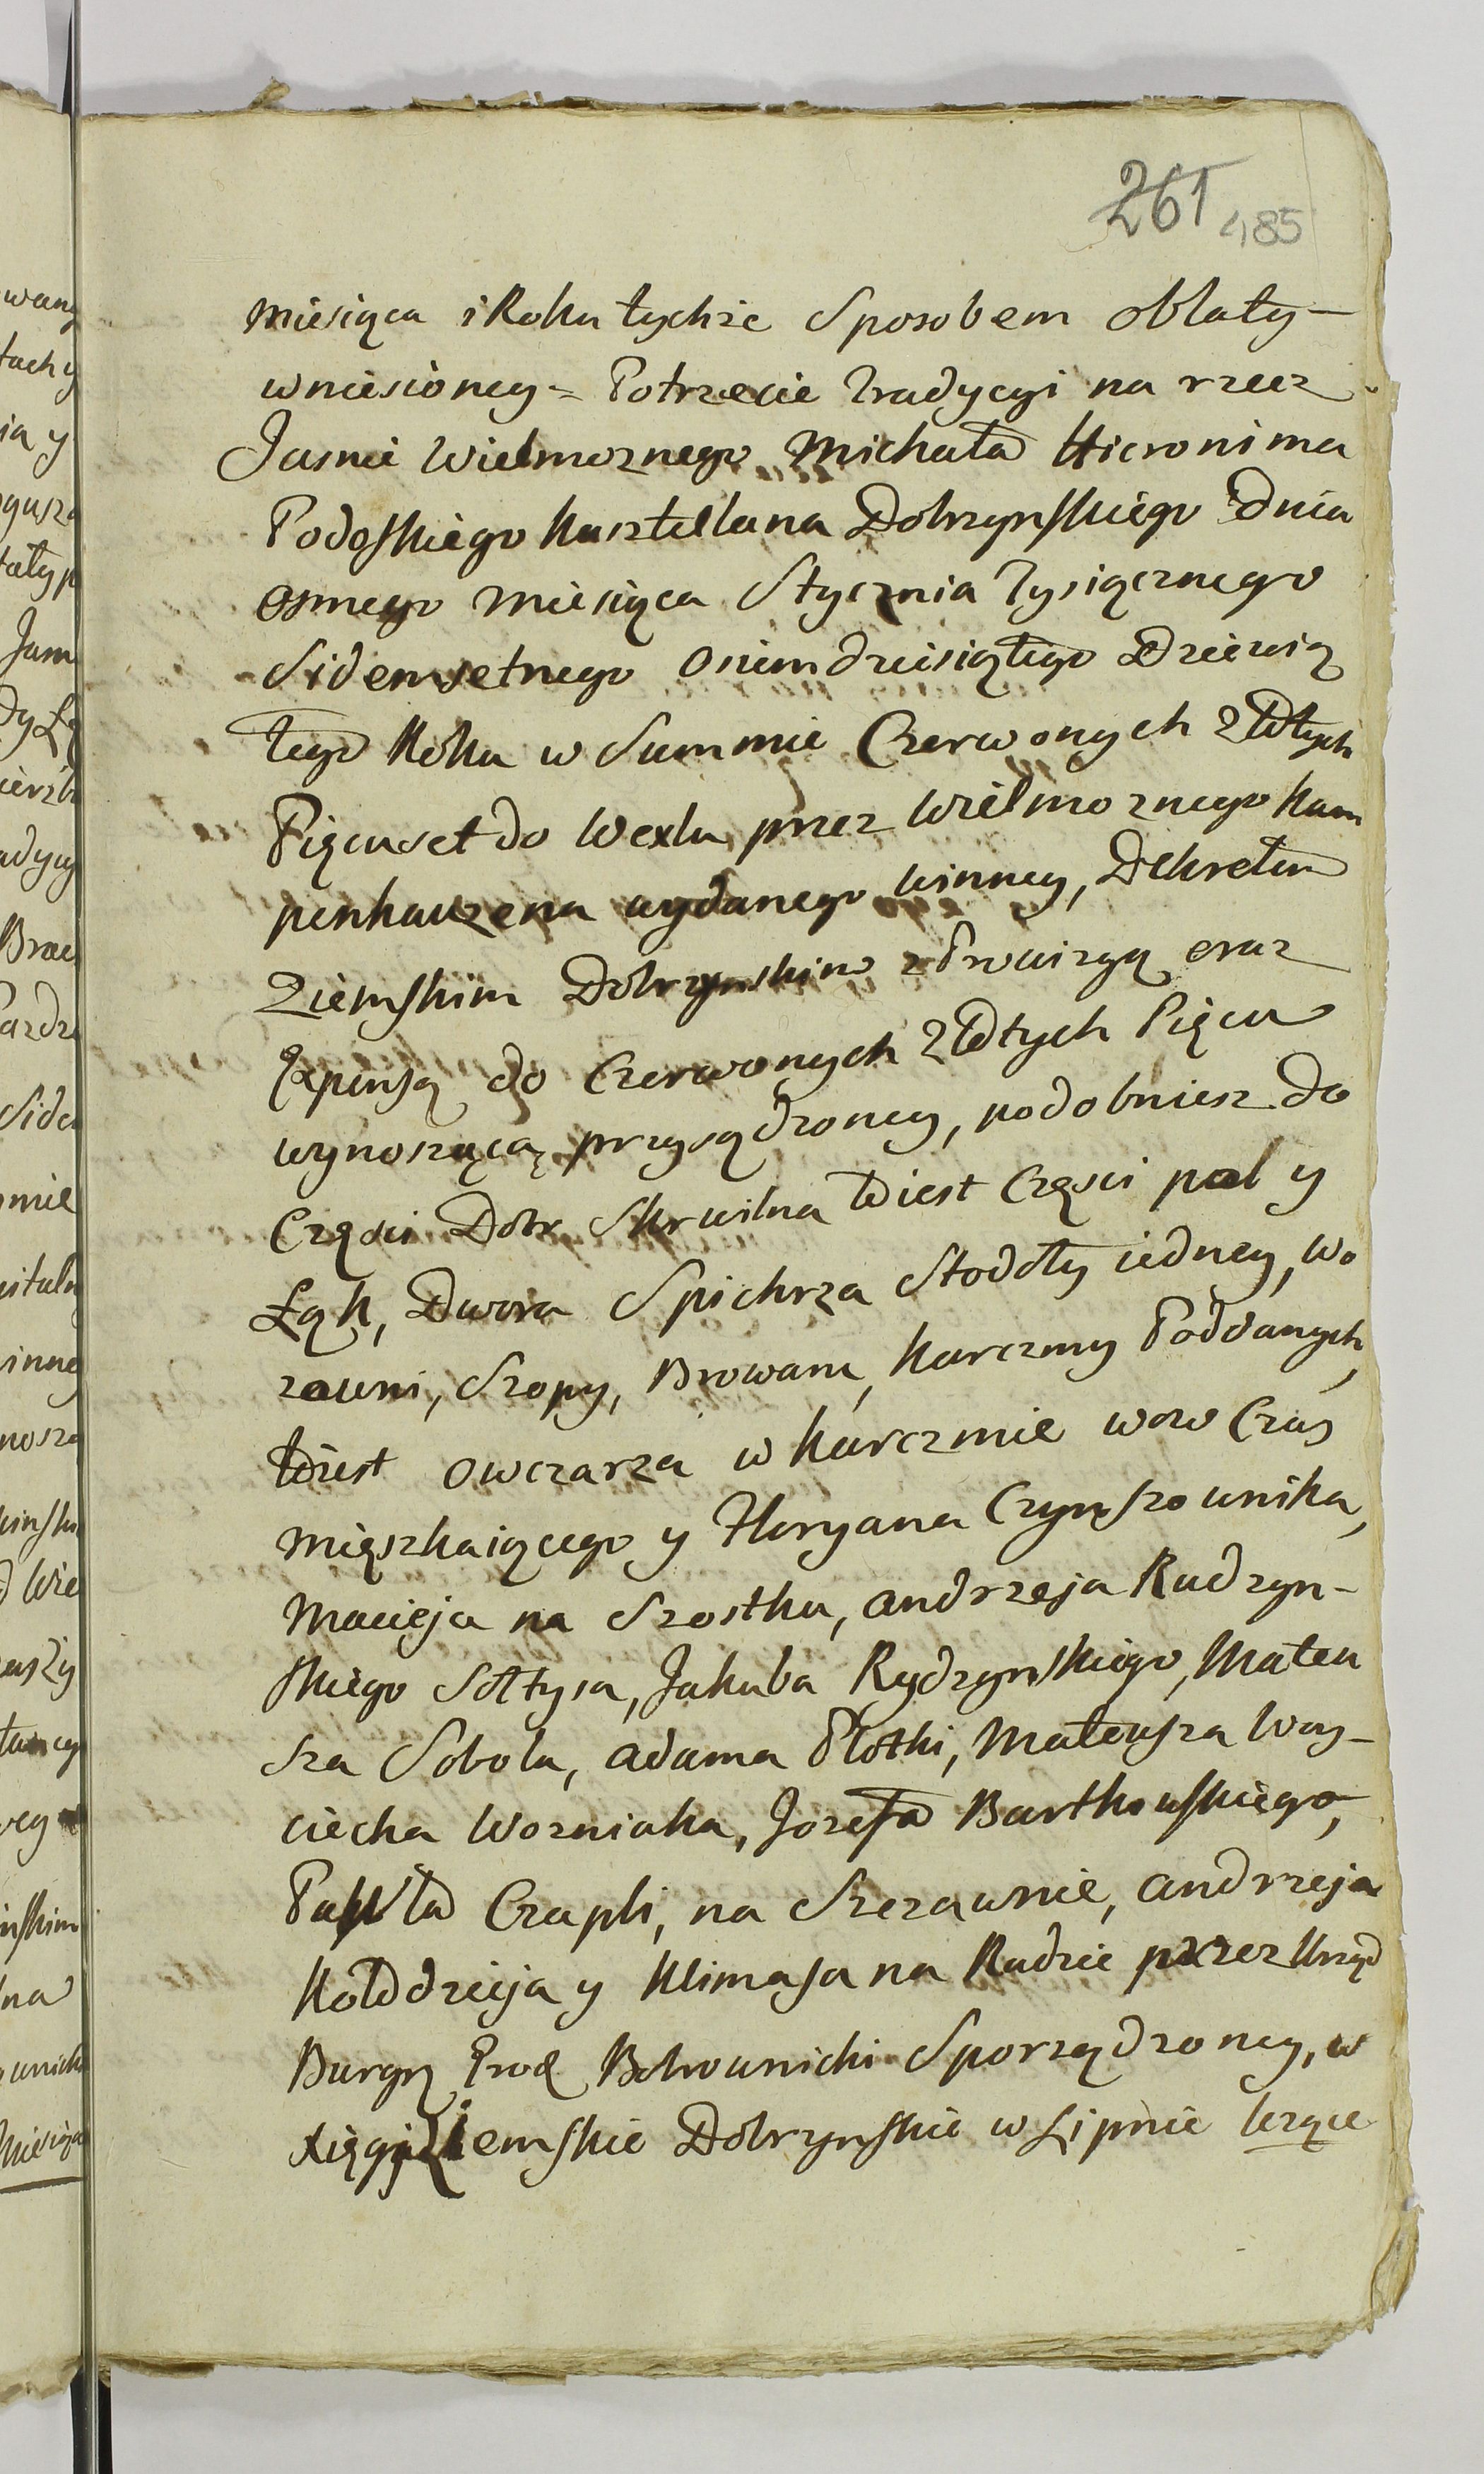 261 485
miesiąca i Roku tychże Sposobem oblaty—
wniesioney = Potrzecie Tradycyi na rzecz
Jasnie Wielmoznego Michała Hieronima
Podoskiego Kasztellana Dobrzynskiego Dnia
osmego miesiąca Stycznia Tysiącznego
Sidemsetnego osimdziesiątego Dziewią
tego Roku w Summie Czerwonych Złłtych
Pięcuset do Wexlu przez Wielmoznego Kam
penhauzena wydanego winney, Dekretem
Ziemskim Dobrzynskim z Prowizyą oraz
Expensą do Czerwonych Złłtych Pięcu
wynoszącą przysądzoney, podobniesz do
Częsci Dobr Skrwilna to iest Częsci pol y
Łąk, Dwora Spichrza Stodoły iedney, wo
zowni, Szopy, Browaru, Karczmy Poddanych,
to iest owczarza w Karczmie wow Czas
mięszkaiącego y Floryana Czynszownika,
Macieja na Szostku, andrzeja Rudzyn-
skiego Sołtysa, Jakuba Rydzynskiego, Mateu
sza Sobola, adama Płotki, Mateusza Woy-
ciecha Wozniaka, Jozefa Bartkowskiego,
Pawła Czapli, na Szczawnie, andrzeja
Kołodzieja y Klimasa na Rudzie przez Urząd
Burgą Grod Bobrownicki Sporządzoney, w
xięgi Ziemskie Dobrzynskie w Lipnie lezące